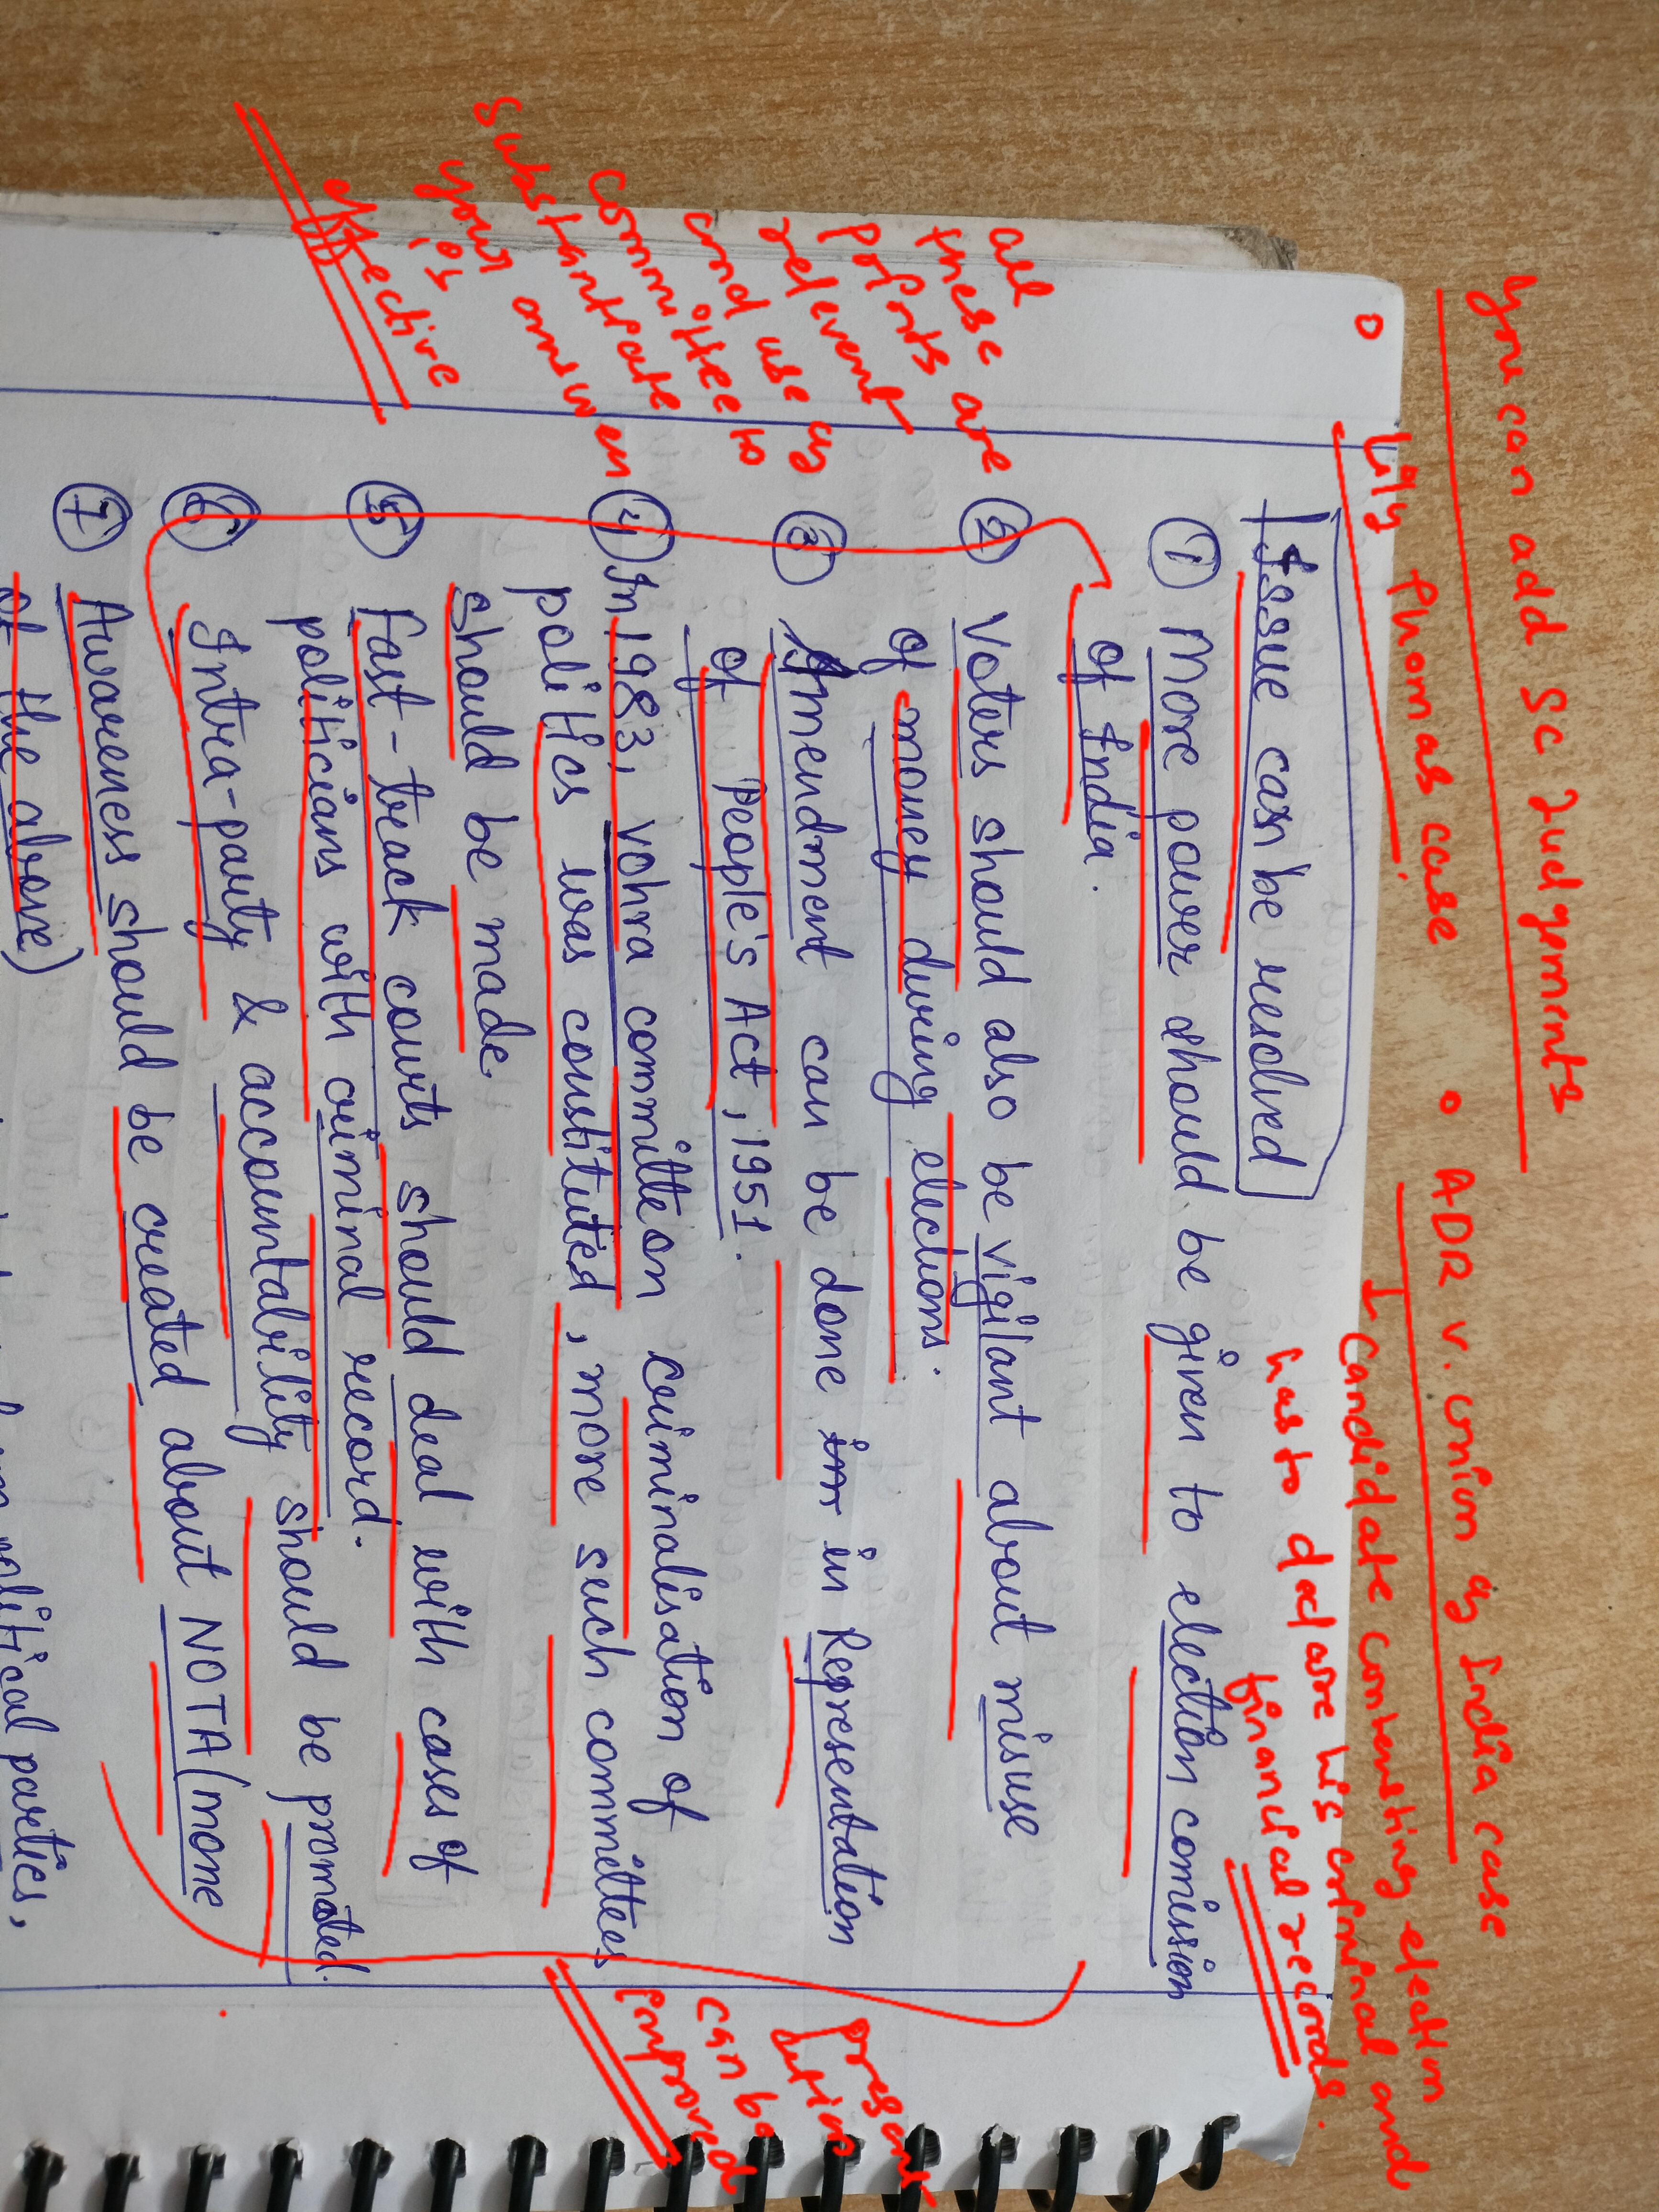 you can add SC Judgements
o Lily Thomas case
• ADR v. Union of India case
Candidate contensting election
has to declare his criminal and
financial records.
Issue can be resolved
① More power should be given to election comission
of India.
② Voters should also be vigilant about misuse
of money during elections.
③ Amendment can be done in in Representation
of People's Act, 1951.
④ In 1983, Vohra committe on criminalisation of
politics was constituted, more such committees
should be made.
⑤ Fast-track courts should deal with cases of
politicians with criminal record.
⑥ Intra-party & accountability should be promoted.
⑦ Awareness should be created about NOTA (none
of the above)
political parties,
all
these are
points
relevent
and use of
committee to
substantiate
your answer
is
effective
present
ation
can be
improved